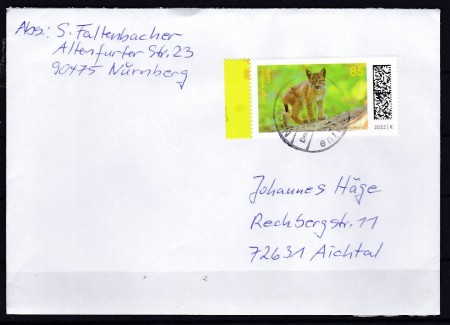 Abs.: S. Faltenbacher
Altenfurter Str. 23
90475 Nürnberg
85
2022 | €
Johannes Häge
Rechbergstr. 11
72631 Aichtal